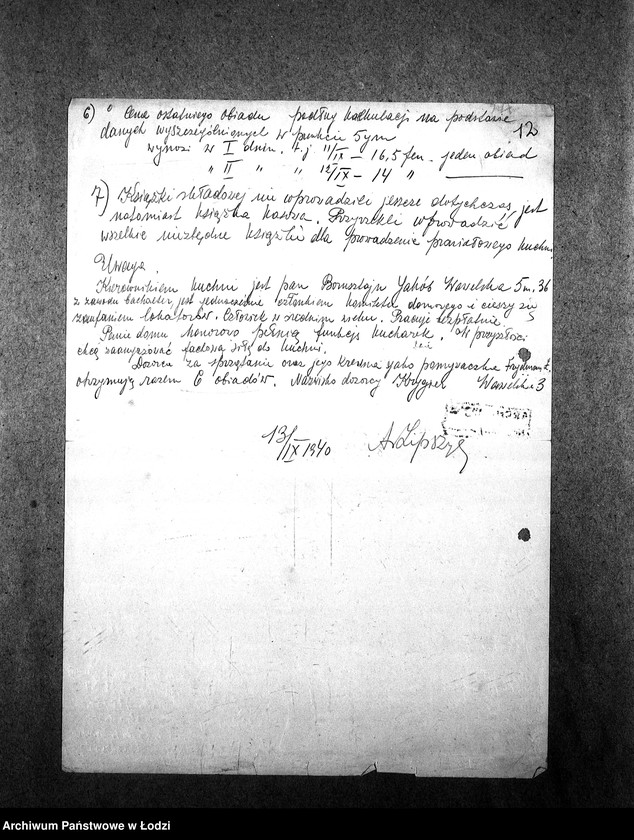 12
6) Cena ostatniego obiadu podług kalkulacji na podstawie
danych wyszczególnionych w punkcie 5ym
wynosi w I dniu t.j 11/IX — 16,5 fen. jeden obiad
" II " " 12/IX — 14 "
7) Książki składowej nie wprowadzili jeszcze dotychczas, jest
natomiast książka kasowa. Przyrzekli wprowadzić
wszelkie niezbędne książki dla prowadzenia prawidłowego kuchni.
Uwaga.
Kierownikiem kuchni jest pan Bornsztajn Jakób Wawelska 5 m. 36
z zawodu buchalter, jest jednocześnie członkiem komitetu domowego i cieszy się
zaufaniem lokatorów. Człowiek w średnim wieku. Pracuje bezpłatnie.
Panie domu honorowo pełnią funkcję kucharek. W przyszłości
chcą zaangażować fachową siłę do kuchni.
Dozorca za sprzątanie oraz jego krewna jako pomywaczka Frydman
otrzymują razem 6 obiadów. Nazwisko dozorcy Krygier Wawelska 3
13/IX 1940
A. Lipszyc
Archiwum Państwowe w Łodzi